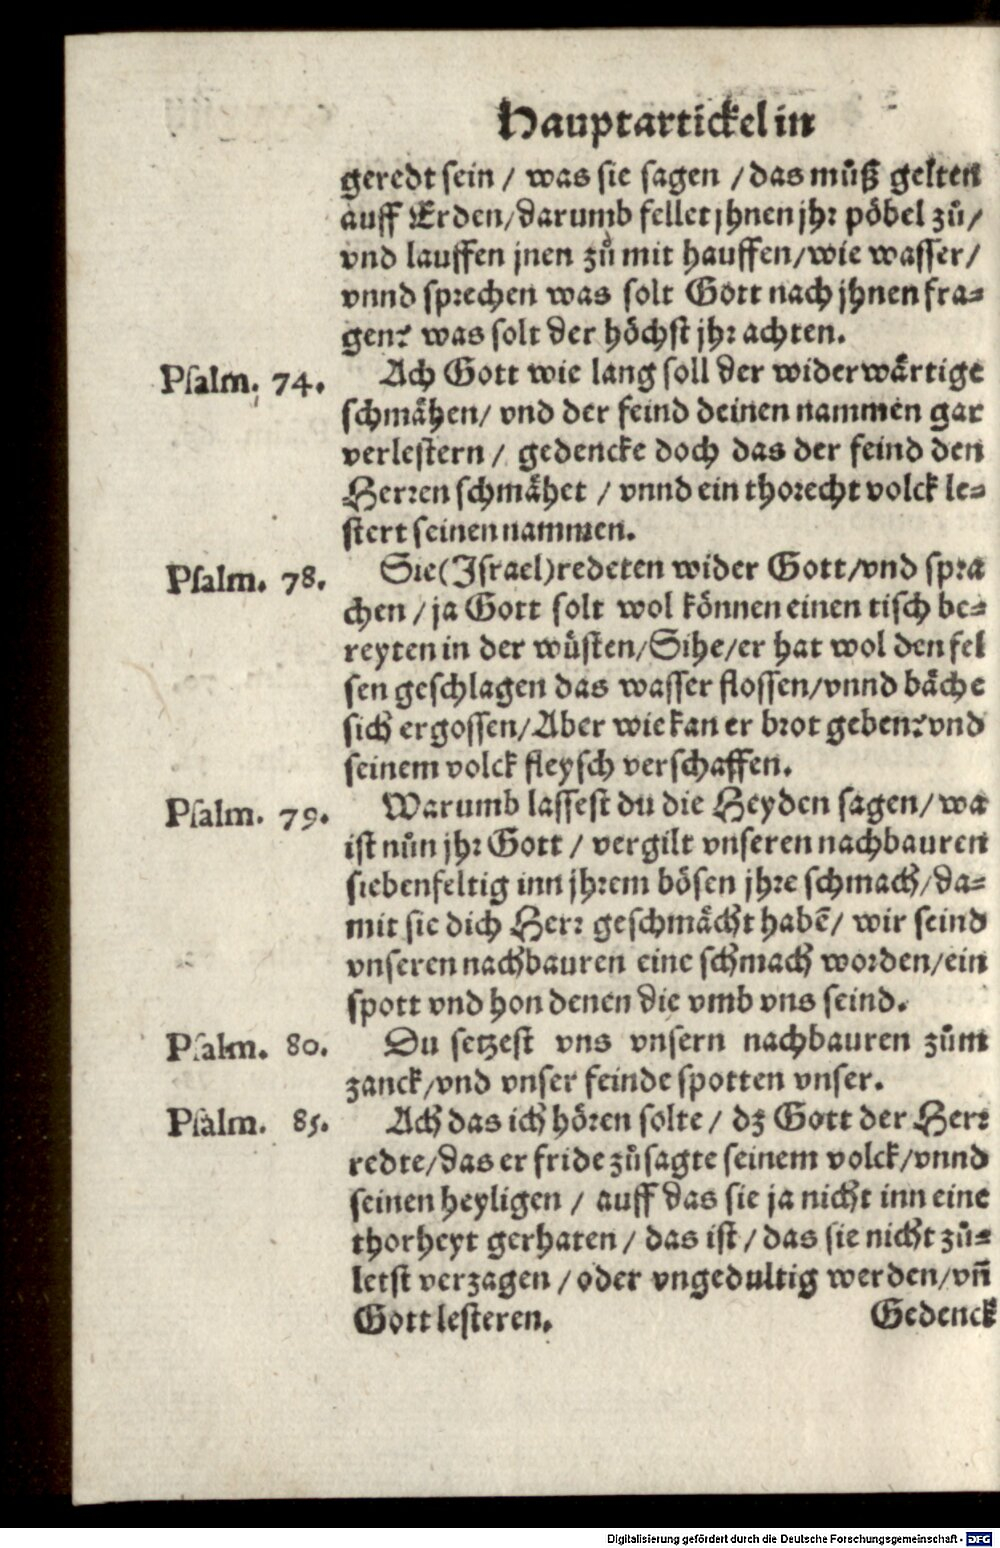 Hauptartickel in
geredt sein / was sie sagen / das můß gelten
auff Erden / darumb fellet jhnen jhr pöbel zů /
vnd lauffen jnen zů mit hauffen / wie wasser /
vnnd sprechen was solt Gott nach jhnen fra⸗
gen? was solt der höchst jhr achten.
Psalm. 74. Ach Gott wie lang soll der widerwärtige
schmähen / vnd der feind deinen nammen gar
verlestern / gedencke doch das der feind den
Herren schmähet / vnnd ein thorecht volck le⸗
stert seinen nammen.
Psalm. 78. Sie (Israel) redeten wider Gott / vnd spra
chen / ja Gott solt wol können einen tisch be⸗
reyten in der wüsten / Sihe / er hat wol den fel
sen geschlagen das wasser flossen / vnnd bäche
sich ergossen / Aber wie kan er brot geben? vnd
seinem volck fleysch verschaffen.
Psalm. 79. Warumb lassest du die Heyden sagen / wa
ist nůn jhr Gott / vergilt vnseren nachbauren
siebenfeltig inn jhrem bösen jhre schmach / da⸗
mit sie dich Herr geschmächt habē / wir seind
vnseren nachbauren eine schmach worden / ein
spott vnd hon denen die vmb vns seind.
Psalm. 80. Du setzest vns vnsern nachbauren zům
zanck / vnd vnser feinde spotten vnser.
Psalm. 85. Ach das ich hören solte / dz Gott der Herr
redte / das er fride zůsagte seinem volck / vnnd
seinen heyligen / auff das sie ja nicht inn eine
thorheyt gerhaten / das ist / das sie nicht zů⸗
letst verzagen / oder vngedultig werden / vñ
Gott lesteren.
Gedenck
Digitalisierung gefördert durch die Deutsche Forschungsgemeinschaft - DFG